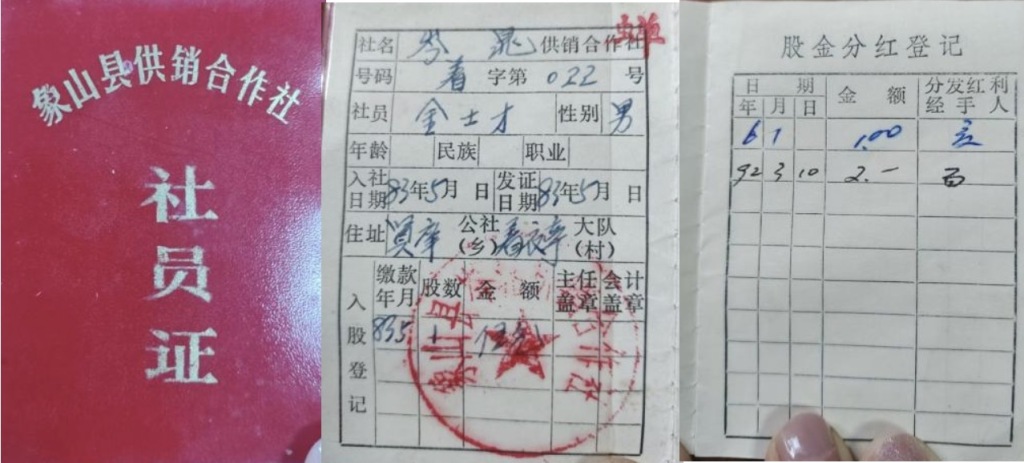 象山县供销合作社
社员证
社名 供销合作社
号码 着 字第 022 号
社员 金士才 性别 男
年龄 民族 职业
入社日期 83年5月 日 发证日期 83年5月 日
住址 公社(乡) 大队(村)
入股登记
缴款年月 股数 金额 主任盖章 会计盖章
835 十
象山县 合作社
股金分红登记
日期 金额 分发红利经手人
年 月 日
6 1 1.00
92 3 10 2.-